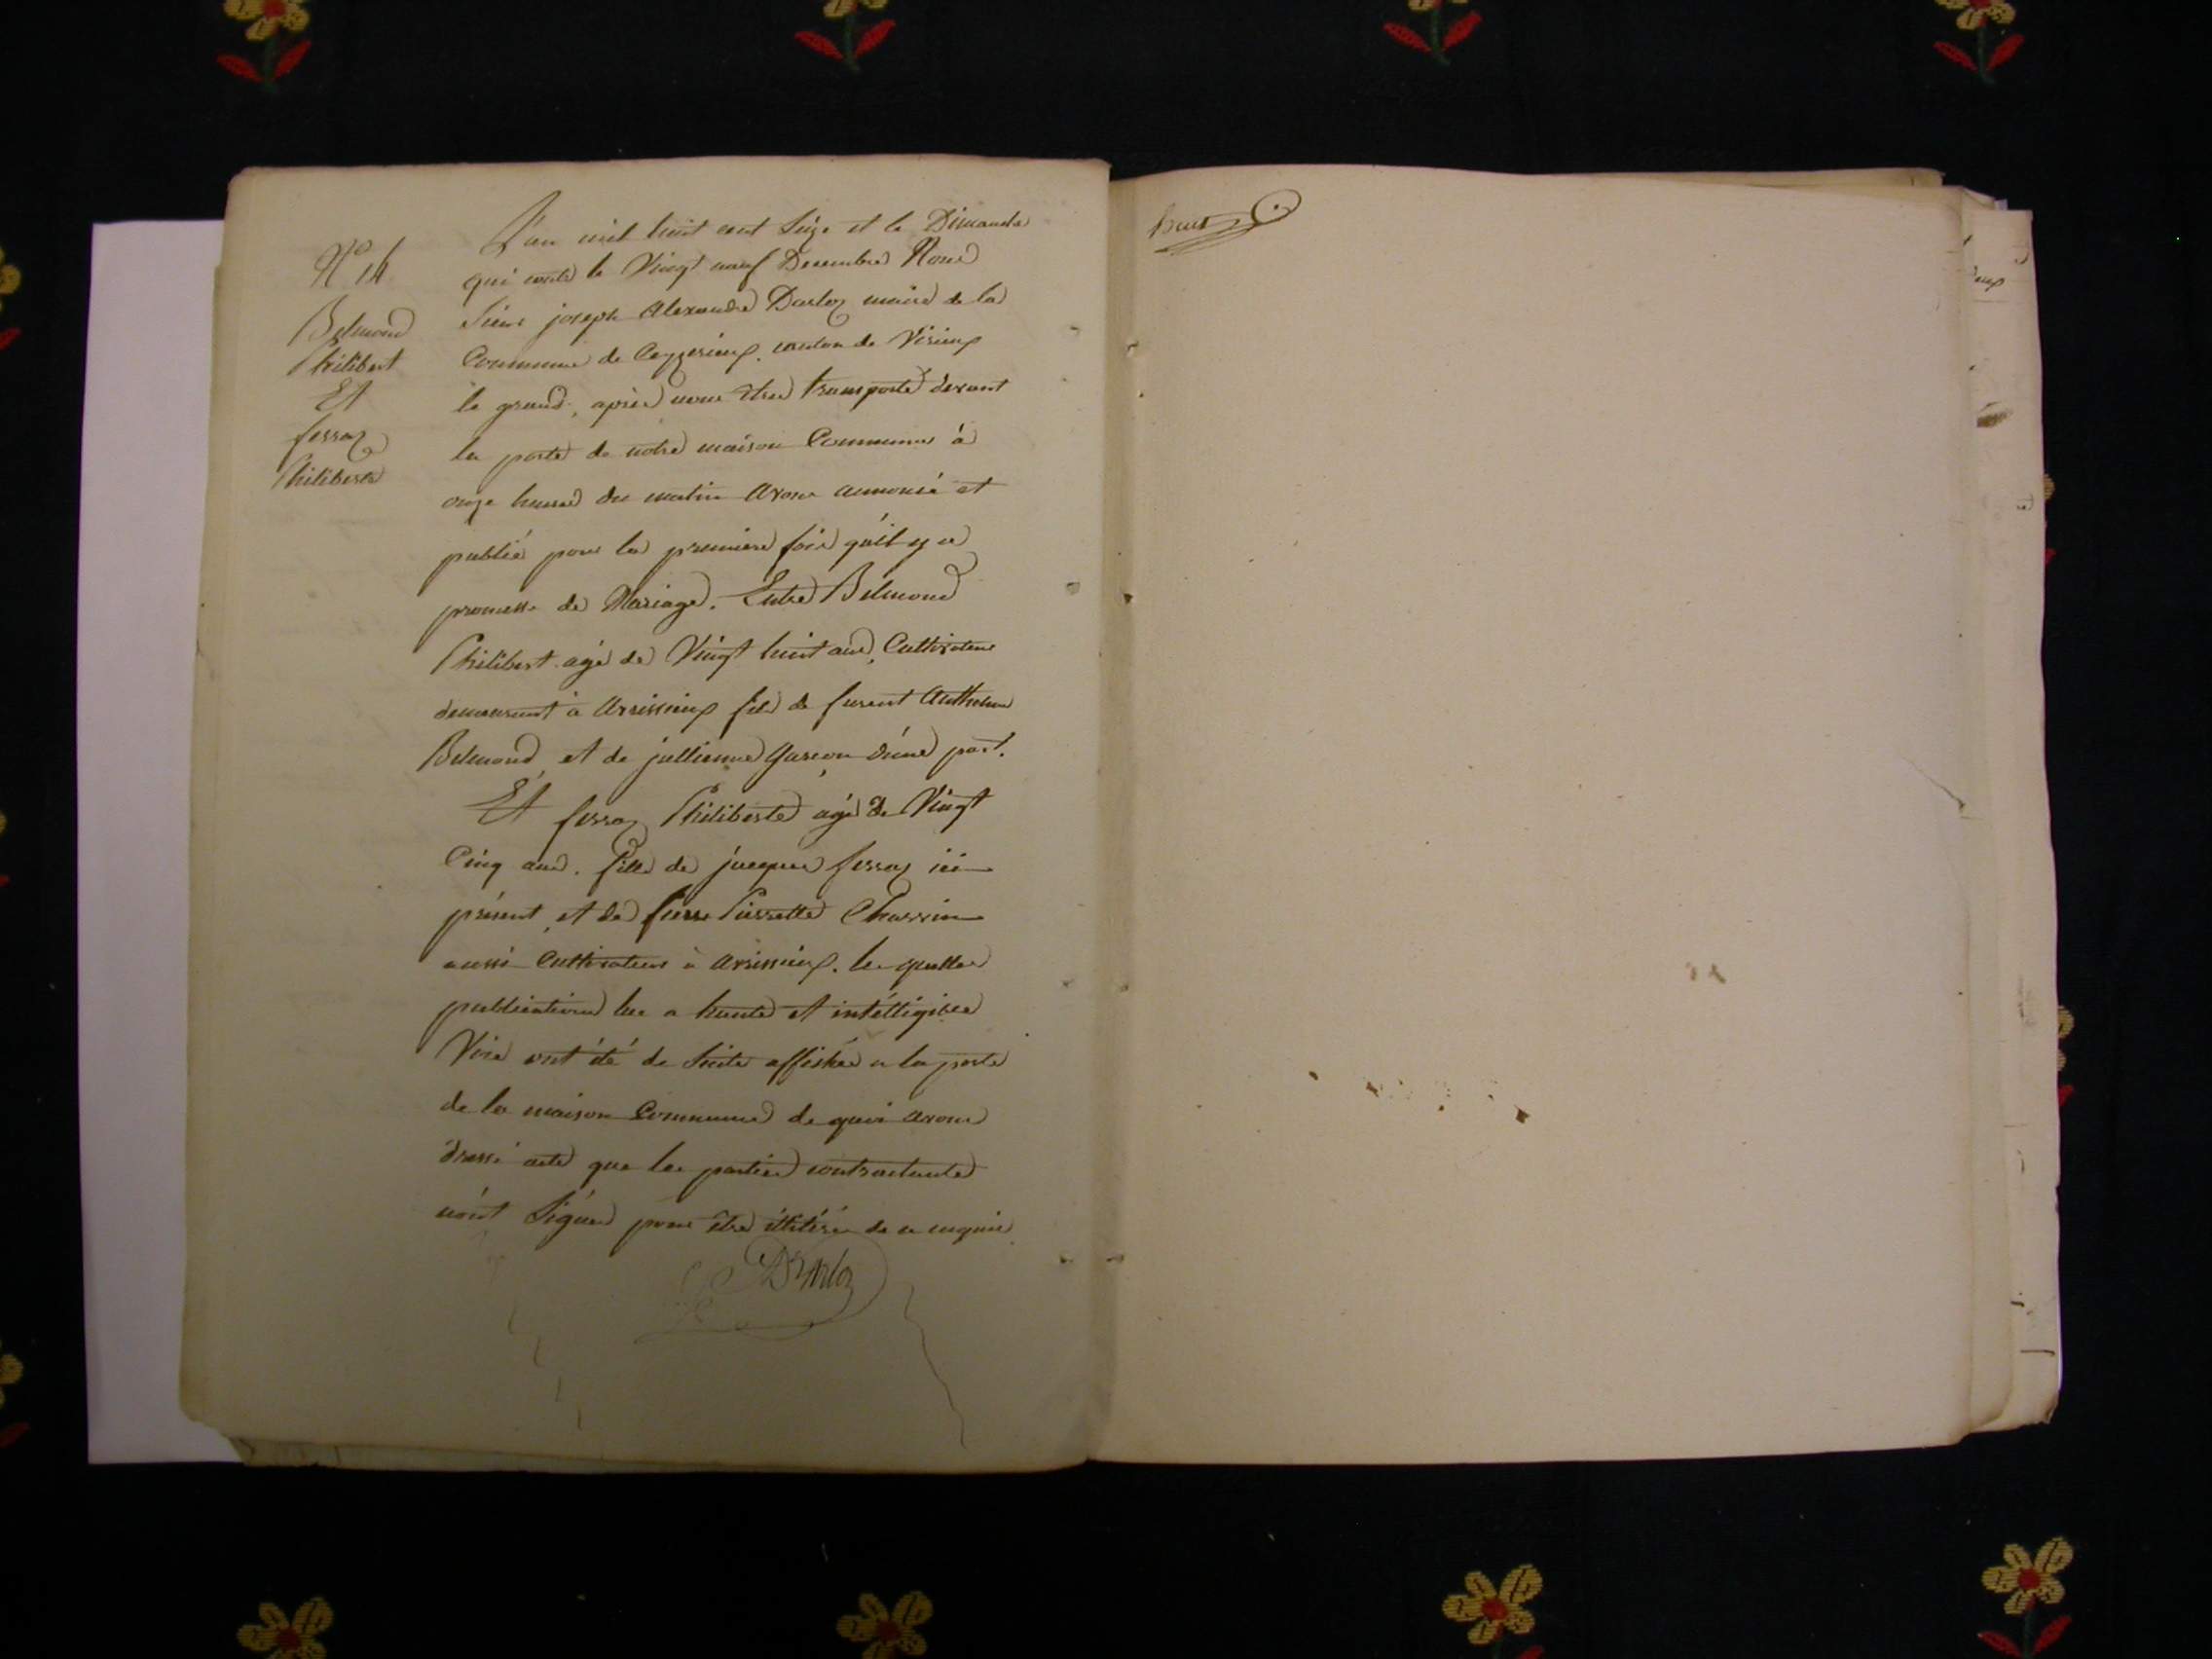 N° 14
Belmond
Philibert
Et
ferraz
Philiberte
L'an mil huit cent Seize et le Dimanche
qui conte le Vingt neuf Decembre Nous
Sieur joseph Alexandre Darloz maire de la
Commune de Ceyzerieux. canton de Virieux
le grand, après nous être transporté devant
la porte de notre maison Commune à
onze heures du matin avons annoncé et
publié pour la premiere fois qu'il y a
promesse de Mariage. Entre Belmond
Philibert agé de Vingt huit ans, Cultivateur
demeurant à Avrissieux fils de furent Anthelme
Belmond et de jullienne Gascon d'une part.
Et ferraz Philiberte agé de Vingt
Cinq ans. fille de jacques ferraz ici
présent, et de Pierrette Charvin
aussi Cultivateurs à Avrissieux. les quelles
publications lue a haute et intélligible
Voix ont été de Suite affichée a la porte
de la maison Commune de quoi avons
dressé acte que les parties contractantes
n'ont Signés pour être illitérés de ce enquis
Darloz